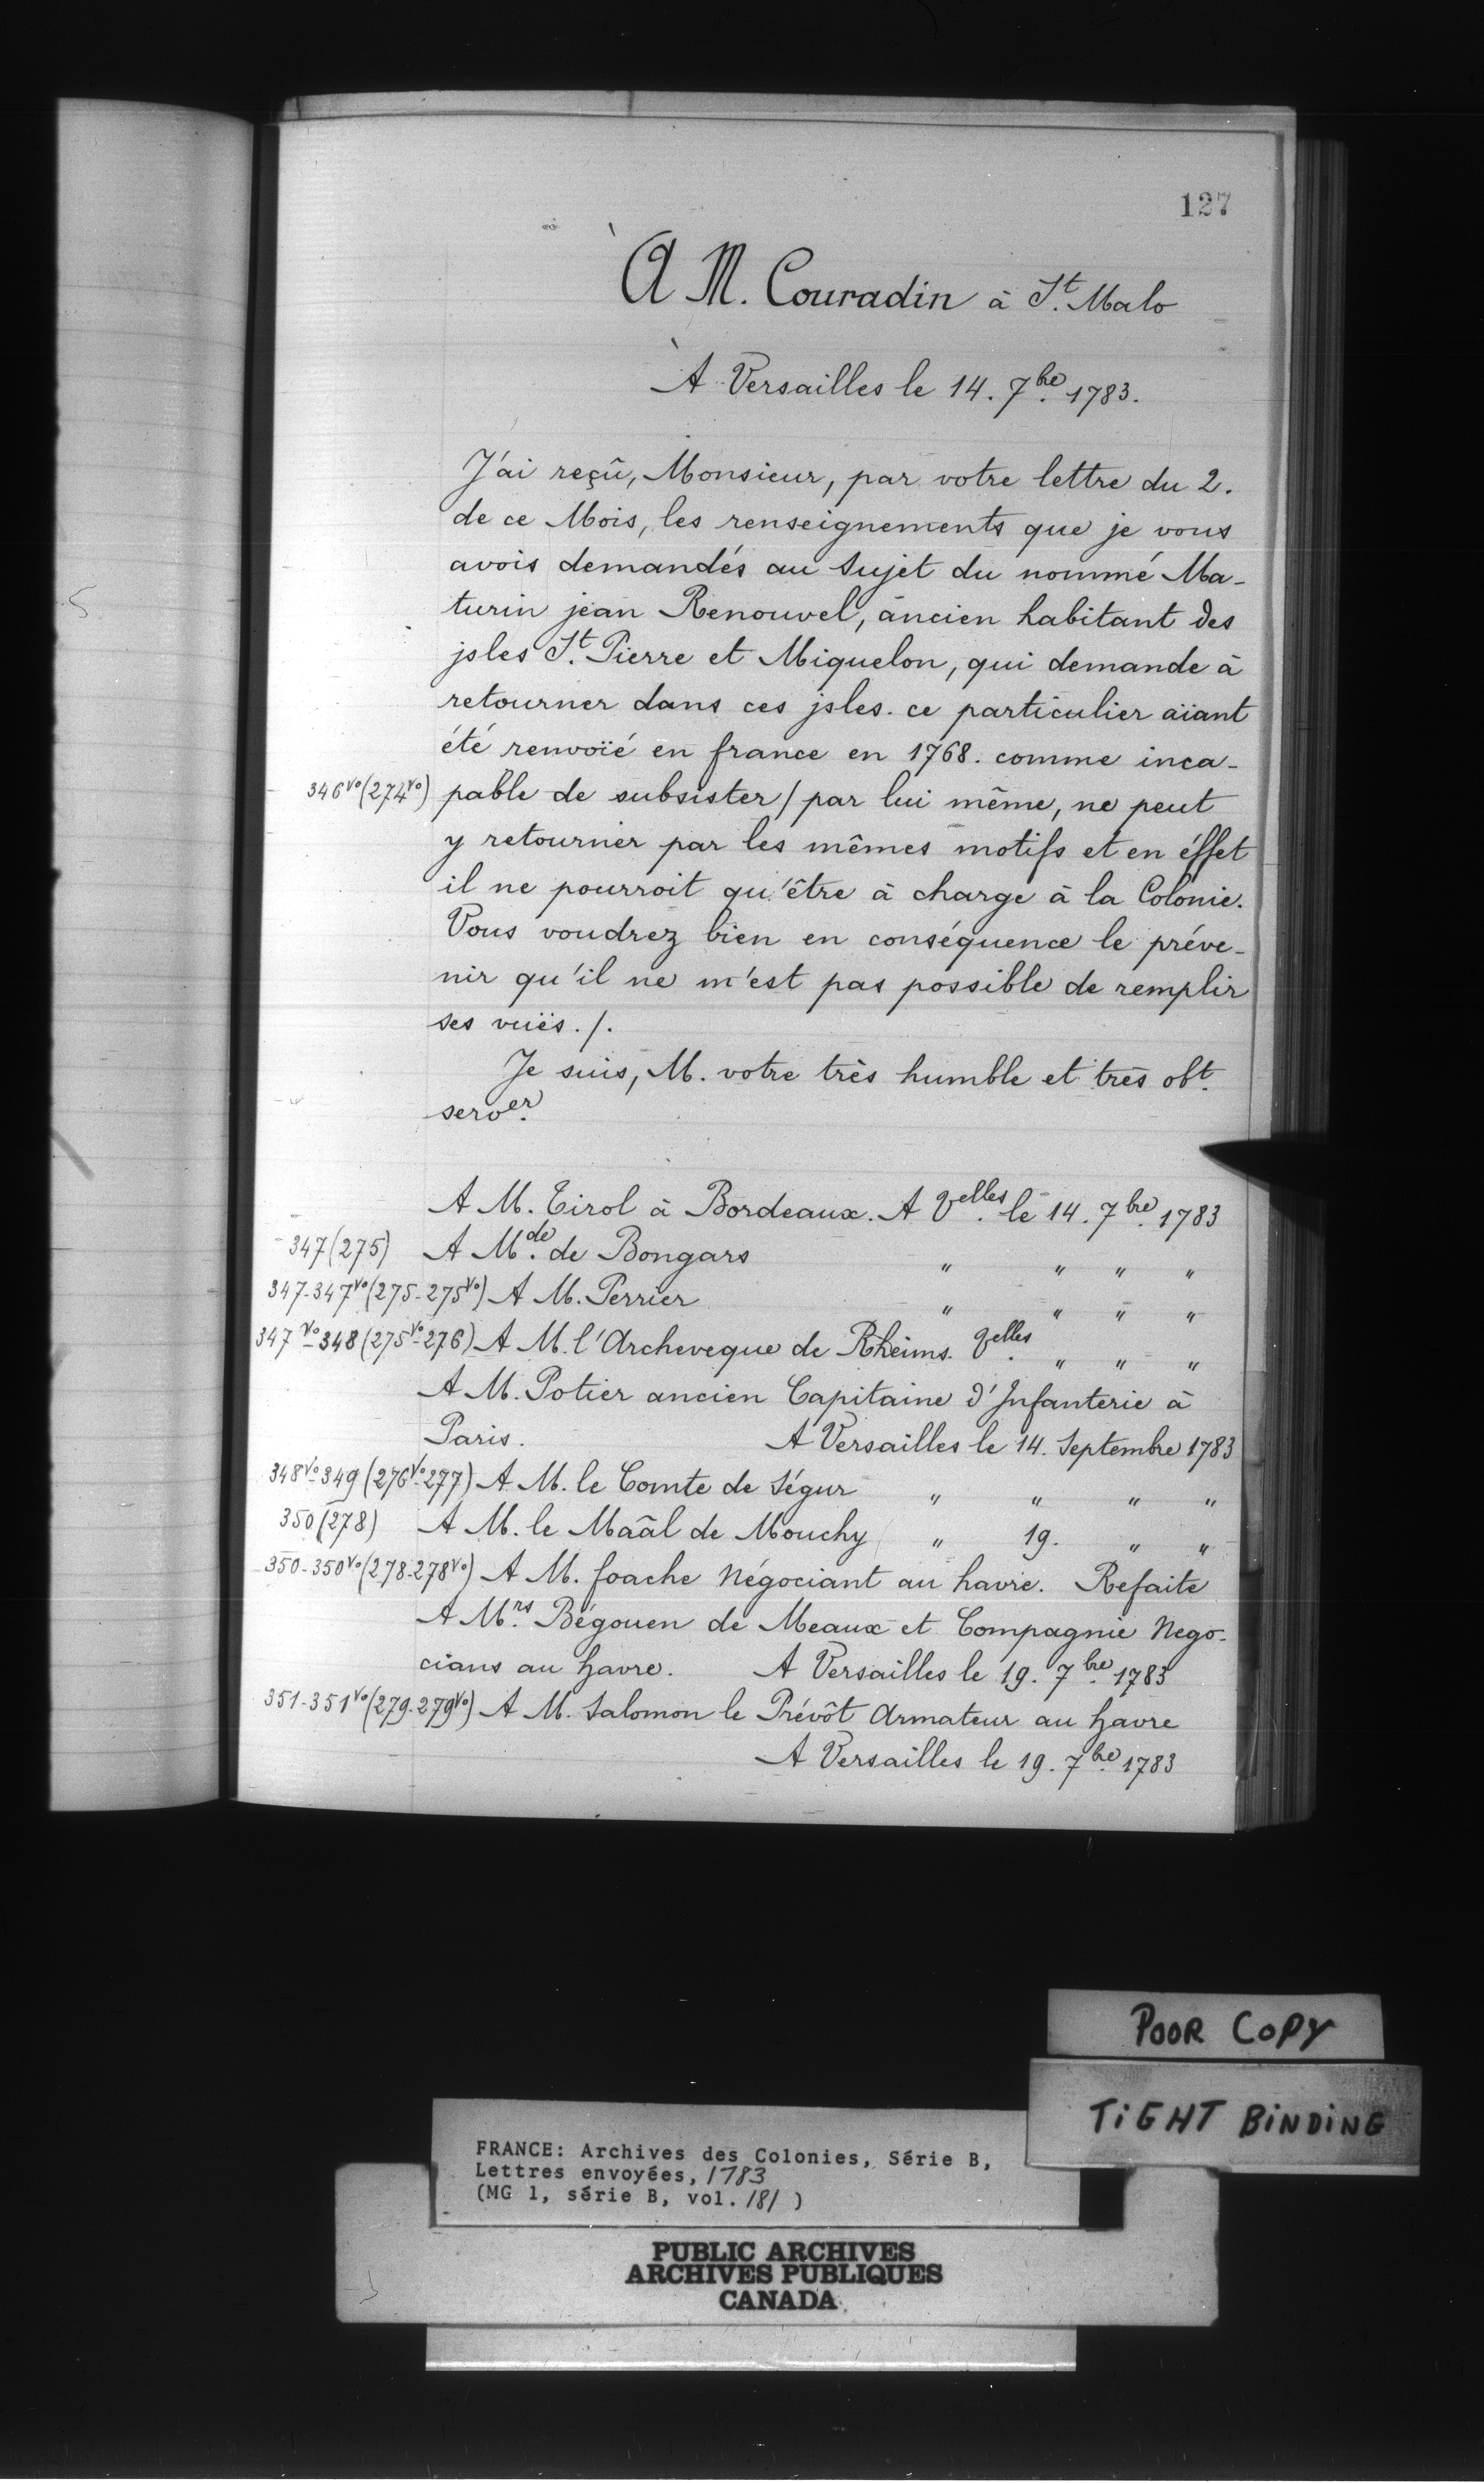 127
À M. Couradin à St. Malo
À Versailles le 14. 7bre. 1783.
J'ai reçû, Monsieur, par votre lettre du 2.
de ce Mois, les renseignements que je vous
avois demandés au sujet du nommé Ma-
turin jean Renouvel, áncien habitant des
jsles St. Pierre et Miquelon, qui demande à
retourner dans ces jsles. ce particulier aïant
été renvoïé en france en 1768. comme inca-
346vo(274vo) pable de subsister / par lui même, ne peut
y retourner par les mêmes motifs et en éffet
il ne pourroit qu'être à charge à la Colonie.
Vous voudrez bien en conséquence le préve-
nir qu'il ne m'est pas possible de remplir
ses vuës./.
Je suis, M. votre très humble et très obt.
server.
A M. Tirol à Bordeaux. A Velles. le 14. 7bre. 1783
347(275) A Mde. de Bongars " " " "
347-347vo(275-275vo) A M. Perrier " " " "
347vo-348(275vo-276) A M. l'Archeveque de Rheims. Velles. " " "
A M. Potier ancien Capitaine d'Infanterie à
Paris. A Versailles le 14. Septembre 1783
348vo-349(276vo-277) A M. le Comte de Ségur " " " "
350(278) A M. le Maâl de Mouchy " 19. " "
350-350vo(278-278vo) A M. foache Négociant au havre. Refaite
A Mrs. Bégouen de Meaux et Compagnie Négo-
cians au havre. A Versailles le 19. 7bre. 1783
351-351vo(279-279vo) A M. Salomon le Prévôt Armateur au havre
A Versailles le 19. 7bre. 1783
POOR COPY
TIGHT BINDING
FRANCE: Archives des Colonies, Série B,
Lettres envoyées, 1783
(MG 1, série B, vol. 181 )
PUBLIC ARCHIVES
ARCHIVES PUBLIQUES
CANADA